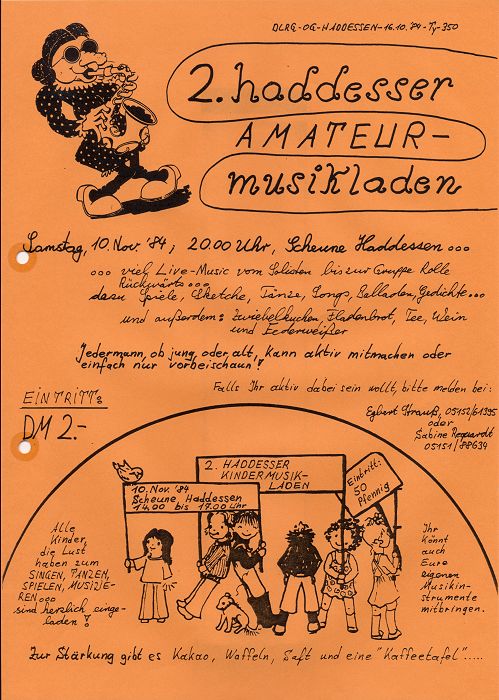 DLRG-OG-HADDESSEN-16.10.'84-Ty-350
2. haddesser
AMATEUR-
musikladen
Samstag, 10. Nov. '84; 20.00 Uhr, Scheune Haddessen ...
... viel Live-Music vom Solisten bis zur Gruppe Rolle
Rückwärts ...
dazu Spiele, Sketche, Tänze, Songs, Balladen, Gedichte ...
und außerdem: Zwiebelkuchen, Fladenbrot, Tee, Wein
und Federweißer
Jedermann, ob jung, oder alt, kann aktiv mitmachen oder
einfach nur vorbeischaun'!
Falls Ihr aktiv dabei sein wollt, bitte melden bei:
EINTRITT:
DM 2.-
Egbert Strauß, 05152/61395
oder
Sabine
05151/88634
2. HADDESSER
KINDERMUSIK-
LADEN
10. Nov. '84
Scheune, Haddessen
14.00 bis 17.00 Uhr
Eintritt:
50
Pfennig
Alle
Kinder,
die Lust
haben zum
SINGEN, TANZEN,
SPIELEN, MUSIZIE-
REN ...
sind herzlich einge-
laden!
Ihr
könnt
auch
Eure
eigenen
Musikin-
strumente
mitbringen.
Zur Stärkung gibt es Kakao, Waffeln, Saft und eine "Kaffeetafel" .....